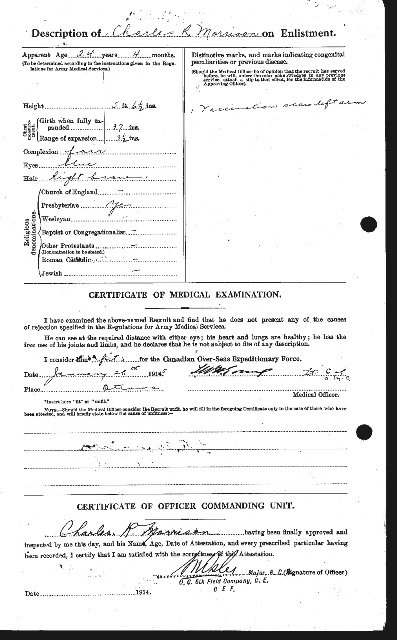 Description of Charles R Morrison on Enlistment.
Apparent Age 24 years 4 months.
(To be determined according to the instructions given in the Regulations for Army Medical Services.)
Distinctive marks, and marks indicating congenital peculiarities or previous disease.
(Should the Medical Officer be of opinion that the recruit has served before, he will, unless the man acknowledges to any previous service, attach a slip to that effect, for the information of the Approving Officer).
Height 5 ft. 6½ ins.
Vaccination scars left arm
Chest measurement
Girth when fully expanded 37 ins.
Range of expansion 3½ ins.
Complexion fair
Eyes blue
Hair light brown
Religious denominations.
Church of England –
Presbyterian Yes
Wesleyan –
Baptist or Congregationalist –
Other Protestants –
(Denomination to be stated.)
Roman Catholic –
Jewish –
CERTIFICATE OF MEDICAL EXAMINATION.
I have examined the above-named Recruit and find that he does not present any of the causes
of rejection specified in the Regulations for Army Medical Services.
He can see at the required distance with either eye; his heart and lungs are healthy; he has the
free use of his joints and limbs, and he declares that he is not subject to fits of any description.
I consider him* fit for the Canadian Over-Seas Expeditionary Force.
Date January 1915
Place Ottawa
Medical Officer.
*Insert here "fit" or "unfit."
NOTE.—Should the Medical Officer consider the Recruit unfit, he will fill in the foregoing Certificate only in the case of those who have
been attested, and will briefly state below the cause of unfitness:—
CERTIFICATE OF OFFICER COMMANDING UNIT.
Charles R Morrison having been finally approved and
inspected by me this day, and his Name, Age, Date of Attestation, and every prescribed particular having
been recorded, I certify that I am satisfied with the correctness of this Attestation.
Major, (Signature of Officer)
O. C. 5th Field Company, C. E.
C E F.
Date 1914.